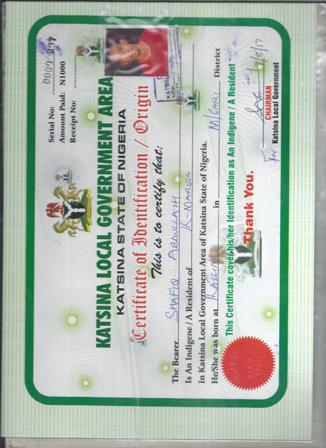 Serial No: 0000217
Amount Paid: N1000
Receipt No:
KATSINA LOCAL GOVERNMENT AREA
KATSINA STATE OF NIGERIA
Certificate of Identification / Origin
This is to certify that:
The Bearer SHAFIQ ABDULLAHI
Is An Indigene / A Resident of K-MARUSA
In Katsina Local Government Area of Katsina State of Nigeria.
He/She was born at in District
This Certificate cover his/her Identification as An Indigene / A Resident
Thank You.
For
CHAIRMAN
Katsina Local Government